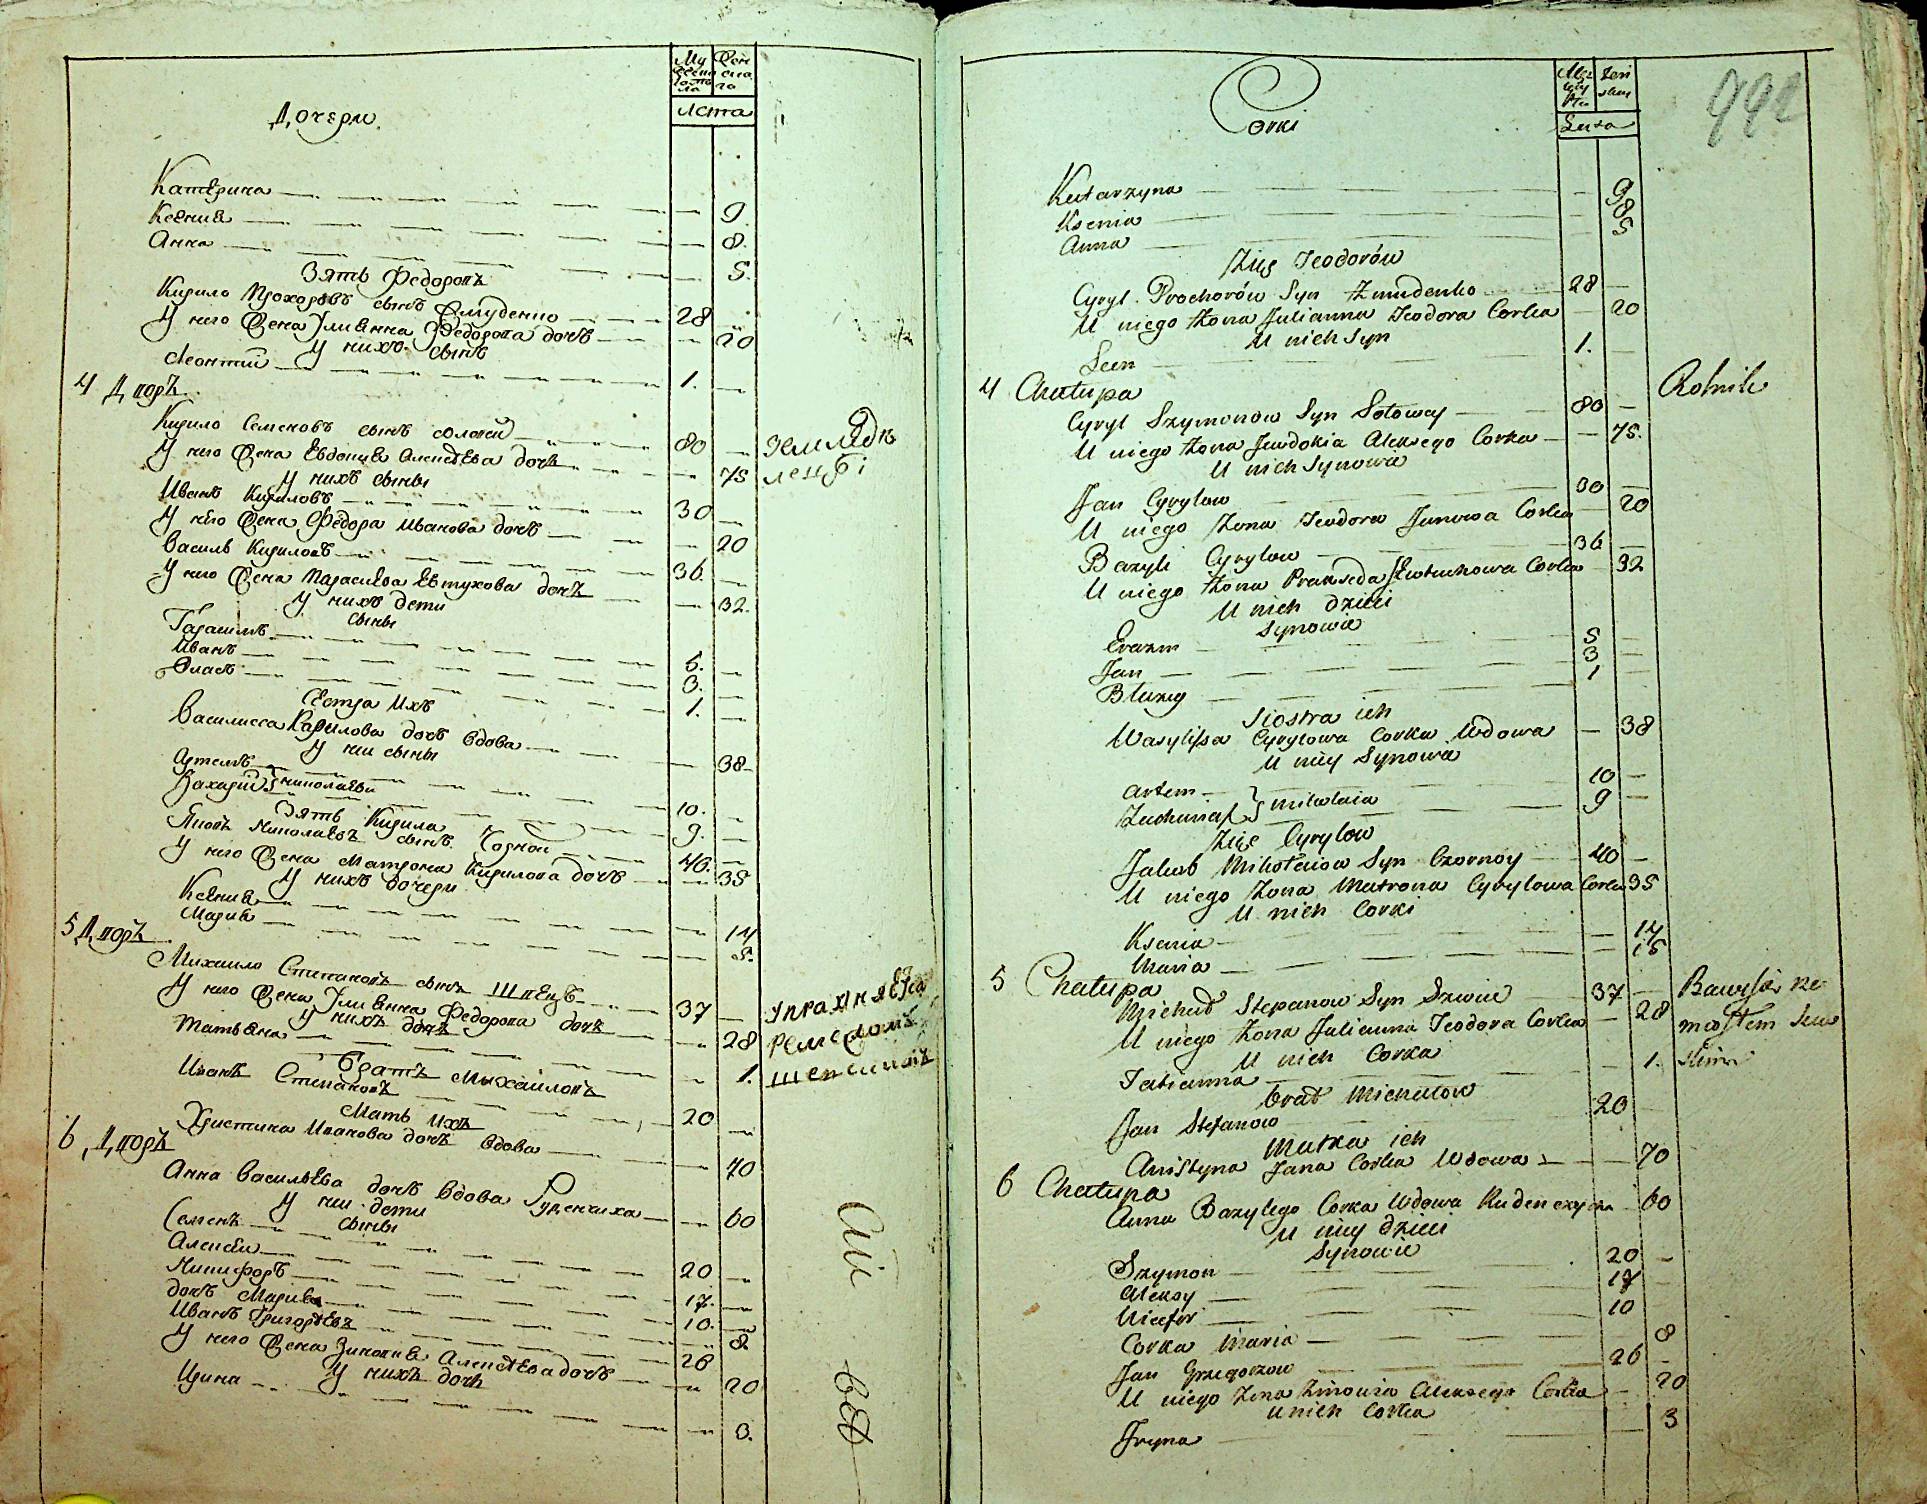 Дочери
Мужеска пола
Женска го
Лета
Катерина 9.
Ксения 8.
Анна 5.
Зять Федоровъ
Кирило Прохоровъ сынъ Жмуденко 28
У него жена Улиянна Федорова дочь 20
У нихъ сынъ
Леонтий 1.
4 Дворъ
Кирило Семеновъ сынъ Соловей 80
У него жена Евдокия Алексеева дочь 75
У нихъ сыны
Иванъ Кириловъ 30
У него жена Федора Иванова дочь 20
Василь Кириловъ 36.
У него жена Параскева Евтухова дочь 32.
У нихъ дети
сыны
Гарасимъ 5.
Иванъ 3.
Власъ 1.
Сестра ихъ
Василисса Кирилова дочь вдова 38
У ней сыны
Артемъ 10.
Захарий } Николаеви 9.
Зять Кирила
Яковъ Николаевъ сынъ Чорной 40.
У него жена Матрона Кирилова дочь 35
У нихъ дочери
Ксения 14
Мария 5.
5 Дворъ
Михайло Степановъ сынъ Швецъ 37
У него жена Улиянна Федорова дочь 28
У нихъ дочь
Татьяна 1.
Братъ Михайловъ
Иванъ Степановъ 20
Мать ихъ
Христина Иванова дочь вдова 70
6, Дворъ
Анна Васильева дочь вдова Руденчиха 60
У ней дети
сыны
Семенъ 20
Алексей 17.
Никифоръ 10.
дочь Мария 8
Иванъ Григорьевъ 26
У него жена Зиновия Алексеева дочь 20
У нихъ дочь
Ирина 3.
земледе
лецъ
упражняется
ремесломъ
шевскимъ
Corki
Męz
kiey
Płci
Żeń
skiey
Luta
992
Katarzyna 9
Ksenia 8
Anna 5
Zięć Teodorów
Cyryl Prochorów Syn Zmudenko 28
U niego Żona Julianna Teodora Corka 20
U nich Syn
Leon 1.
4 Chałupa
Rolnik
Cyryl Szymonow Syn Sołowey 80
U niego Żona Jewdokia Alexego Corka 75.
U nich Synowie
Jan Cyryłow 30
U niego Żona Teodora Janowa Corka 20
Bazyli Cyryłow 36
U niego Żona Prakseda Jewtuchowa Corka 32
U nich dzieci
Synowie
Erazm 5
Jan 3
Błażey 1
Siostra ich
Wasylissa Cyryłowa Corka Wdowa 38
U niey Synowie
Artem 10
Zachariasz } Mikołaia 9
Zięć Cyryłow
Jakub Mikołaiow Syn Czornoy 40
U niego Żona Matrona Cyryłowa Corka 35
U nich Corki
Ksenia 14
Maria 15
5 Chałupa
Michał Stepanow Syn Szwiec 37
U niego Żona Julianna Teodora Corka 28
U nich Corka
Tatianna 1.
Brat Michałow
Jan Stefanow 20
Matka ich
Christyna Jana Corka Wdowa 70
Bawi się rze
miosłem Sze
wskim
6 Chałupa
Anna Bazylego Corka Wdowa Rudenczycha 60
U niey dzieci
Synowie
Szymon 20
Aleksy 17
Nicefor 10
Corka Maria 8
Jan Grzegorzow 26
U niego Żona Zinowia Aleksego Corka 20
U nich Corka
Jryna 3